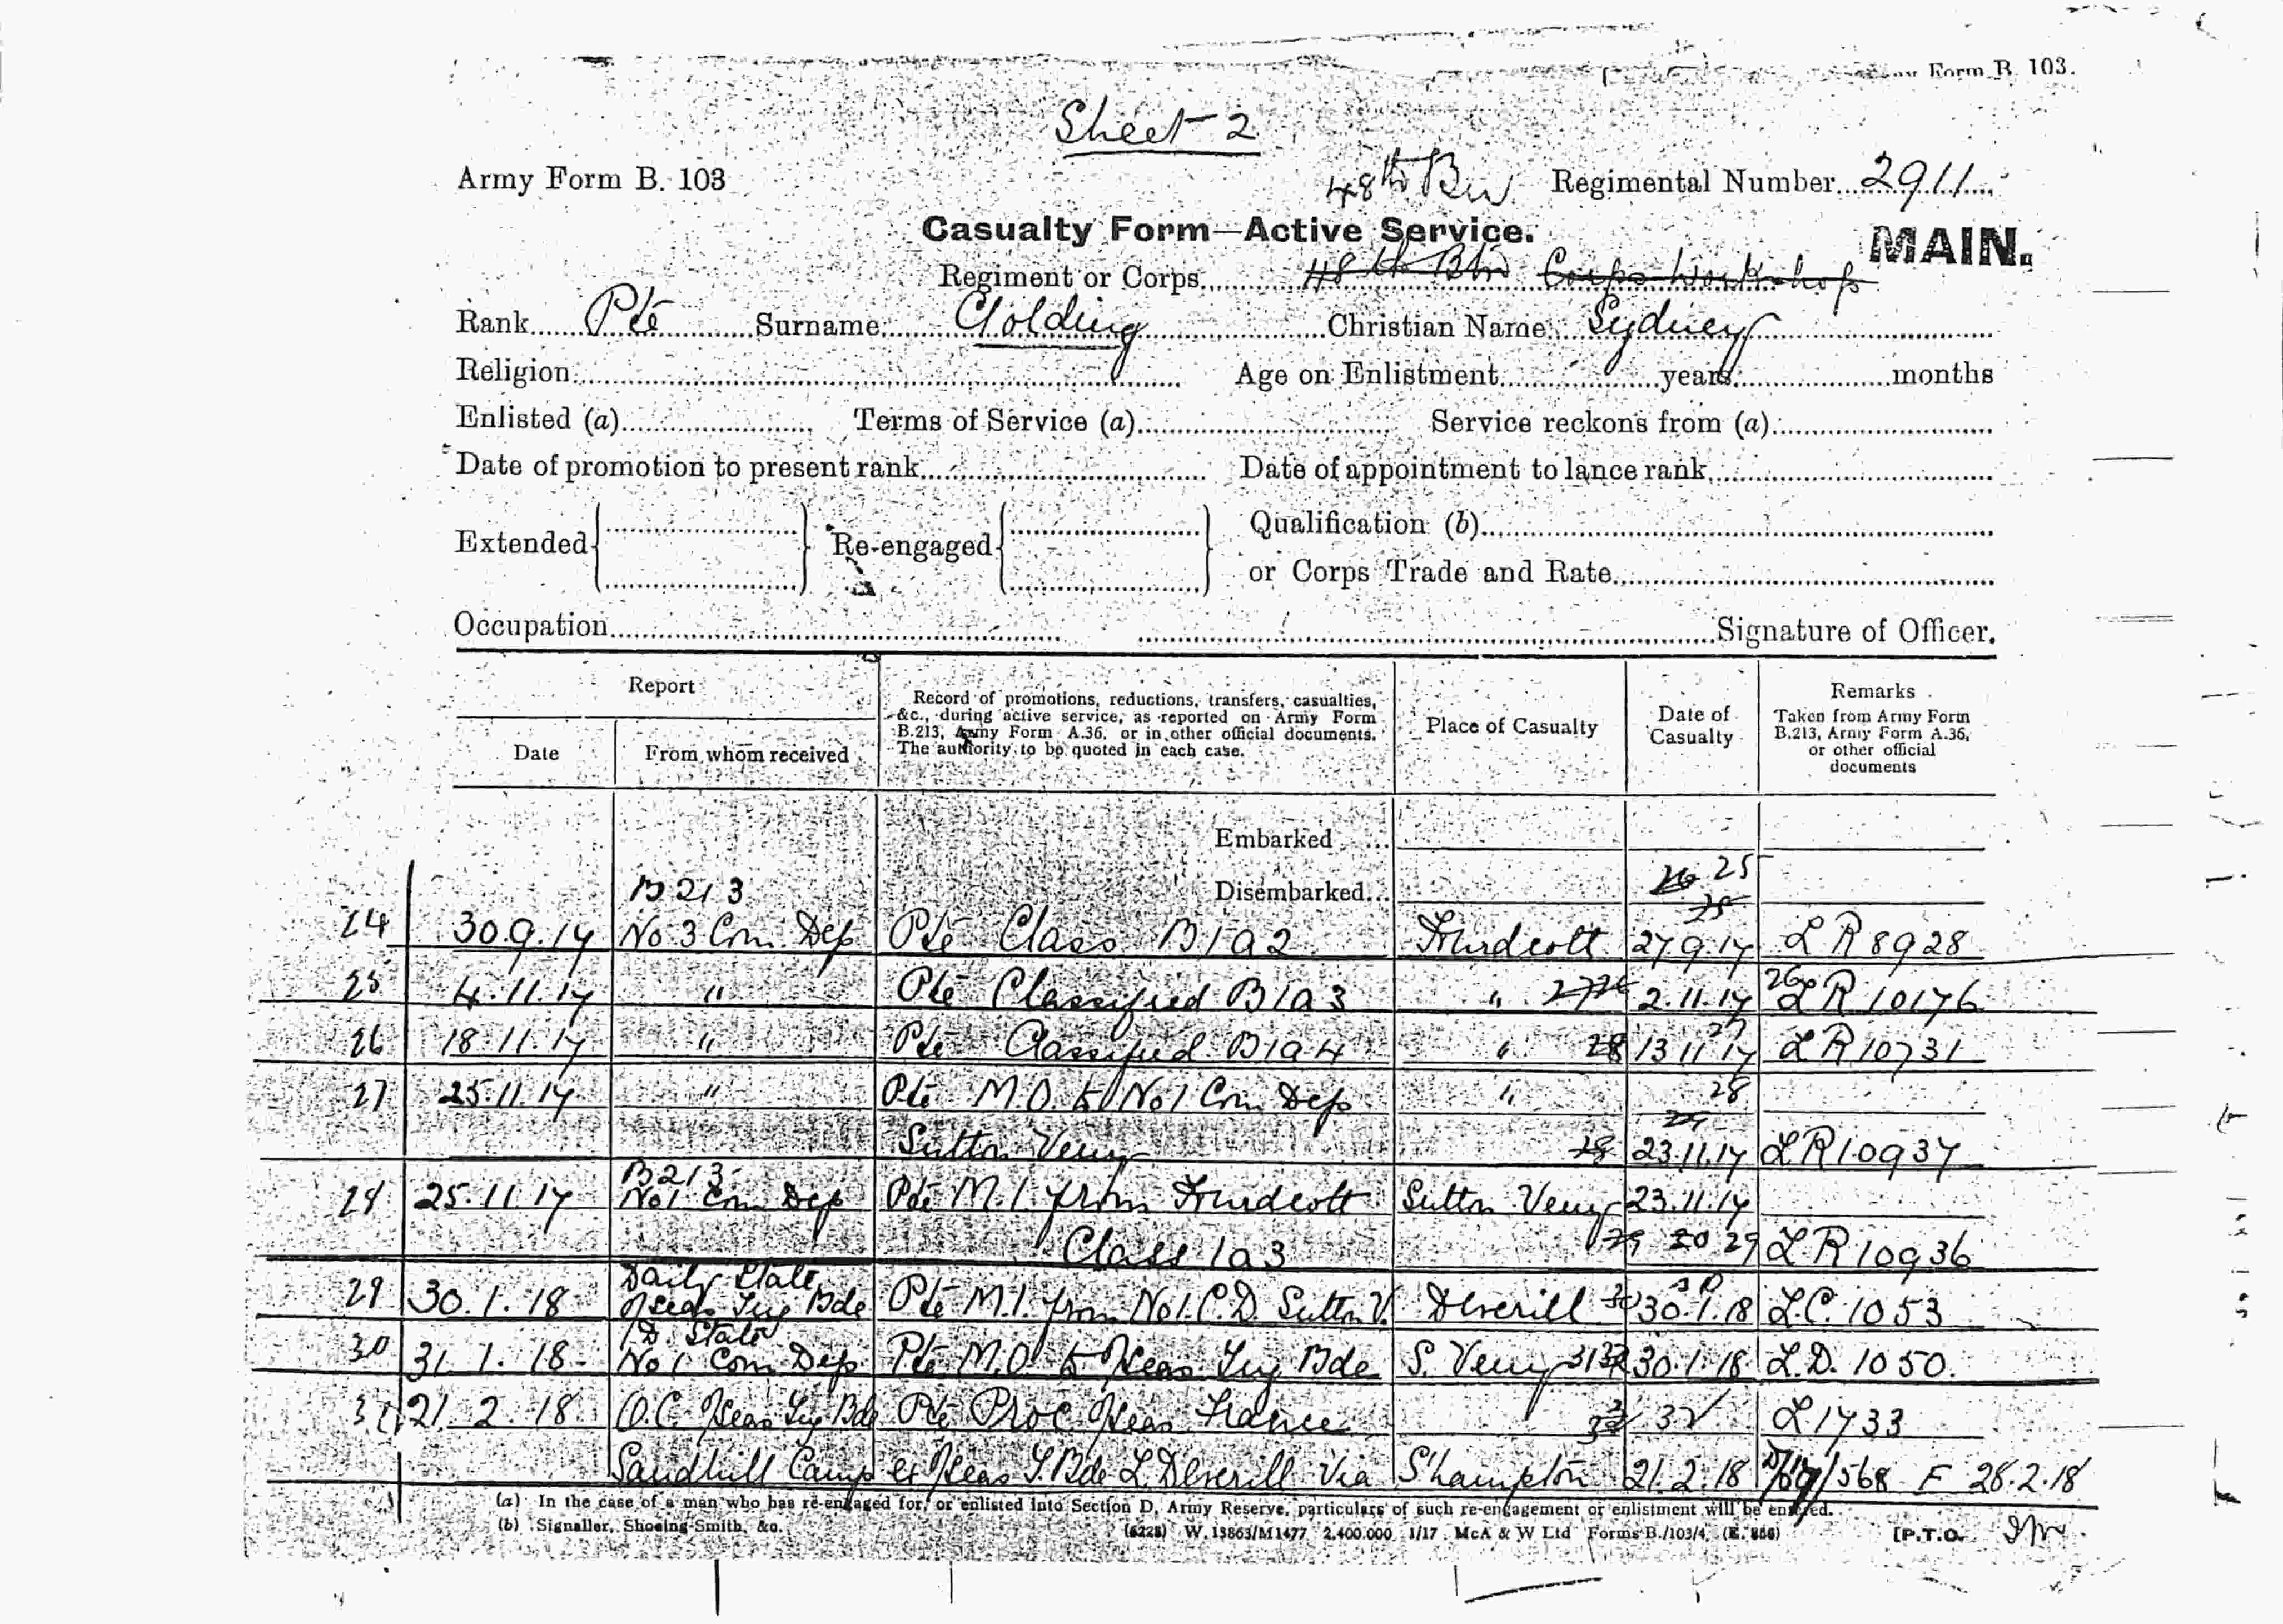 Form B. 103.
Sheet 2
Army Form B. 103
48th Bn Regimental Number 2911
Casualty Form—Active Service.
MAIN.
Regiment or Corps 48th Btn Corps Workshops
Rank Pte Surname Golding Christian Name Sydney
Religion Age on Enlistment years months
Enlisted (a) Terms of Service (a) Service reckons from (a)
Date of promotion to present rank Date of appointment to lance rank
Extended Re-engaged Qualification (b)
or Corps Trade and Rate
Occupation Signature of Officer.
Report
Date From whom received
Record of promotions, reductions, transfers, casualties,
&c., during active service, as reported on Army Form
B.213, Army Form A.36, or in other official documents.
The authority to be quoted in each case.
Place of Casualty
Date of
Casualty
Remarks
Taken from Army Form
B.213, Army Form A.36,
or other official
documents
Embarked
26 25
B213 Disembarked
25
24 30.9.17 No 3 Com Dep Pte Class B1a2 Hurdcott 27.9.17 LR 8928
25 4.11.17 " Pte Classified B1a3 " 27 26 2.11.17 26 LR 10176
27
26 18.11.17 " Pte Classified B1a4 " 28 13 11 17 LR 10731
27 25.11.17 " Pte M.O. to No 1 Com Dep " 28
29
Sutton Veny 28 23.11.17 LR 10937
B213
28 25.11.17 No 1 Com Dep Pte M.I. from Hurdcott Sutton Veny 23.11.17
Class 1a3 29 30 29 LR 10936
Daily State 30
29 30.1.18 O'seas Trg Bde Pte M.I. from No 1. C.D. Sutton V. Deverill 30 30.1.18 L.C. 1053
D. State
30 31.1.18 No 1 Com Dep Pte M.O. to O'seas Trg Bde S. Veny 31 32 30.1.18 L.D. 1050.
31 21.2.18 O.C. O'seas Trg Bde Pte Proc O'seas France 32 L1733
Sandhill Camp ex O'seas T. Bde L Deverill Via S'hampton 21.2.18 /568 F 28.2.18
(a) In the case of a man who has re-engaged for, or enlisted into Section D, Army Reserve, particulars of such re-engagement or enlistment will be entered.
(b) Signaller, Shoeing-Smith, &c.
(6228) W. 13863/M1477 2,400,000 1/17 McA & W Ltd Forms B./103/4 (E. 856) [P.T.O.